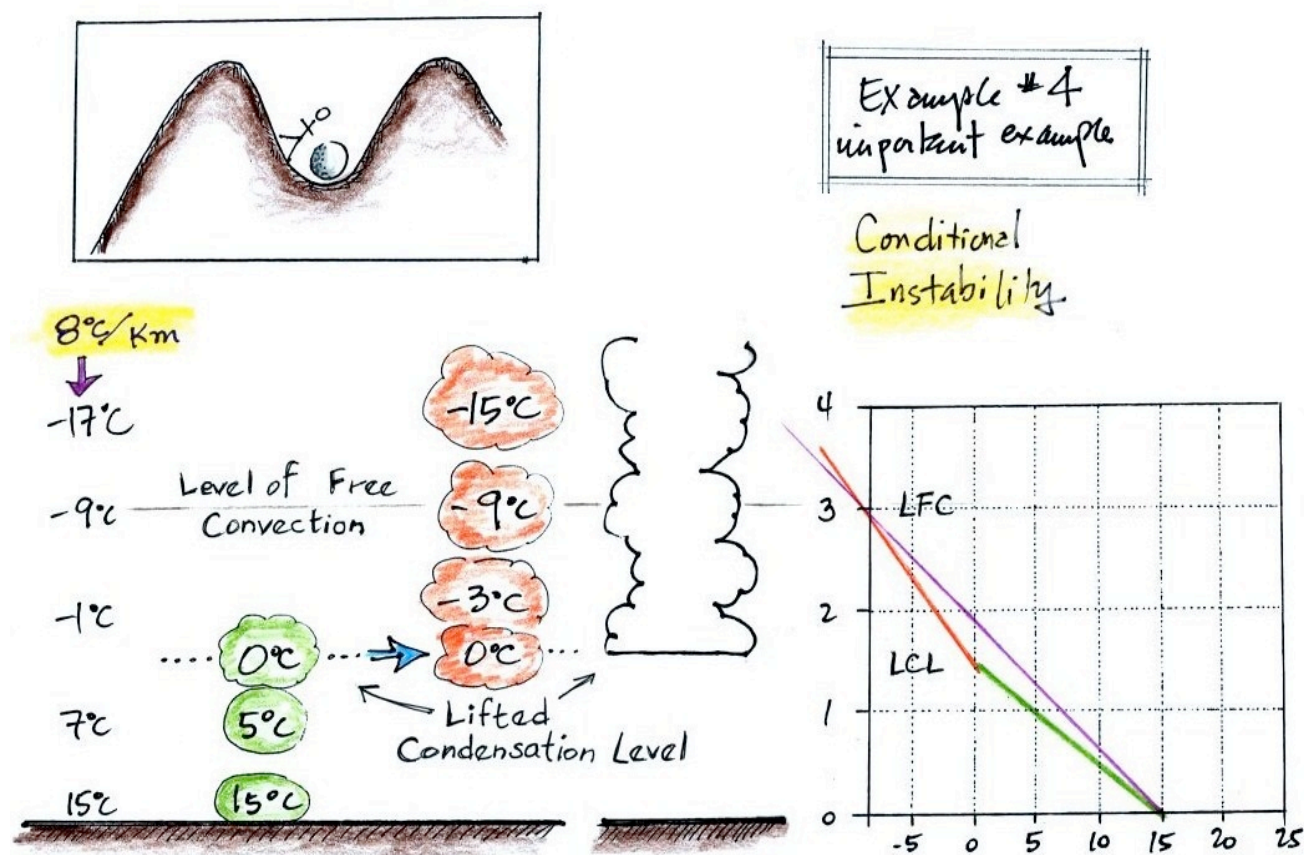 Example #4
important example
Conditional
Instability
8°C/Km
-17°C
-9°C
-1°C
7°C
15°C
Level of Free
Convection
-15°C
-9°C
-3°C
0°C
0°C
5°C
15°C
Lifted
Condensation Level
4
3
2
1
0
LFC
LCL
-5
0
5
10
15
20
25